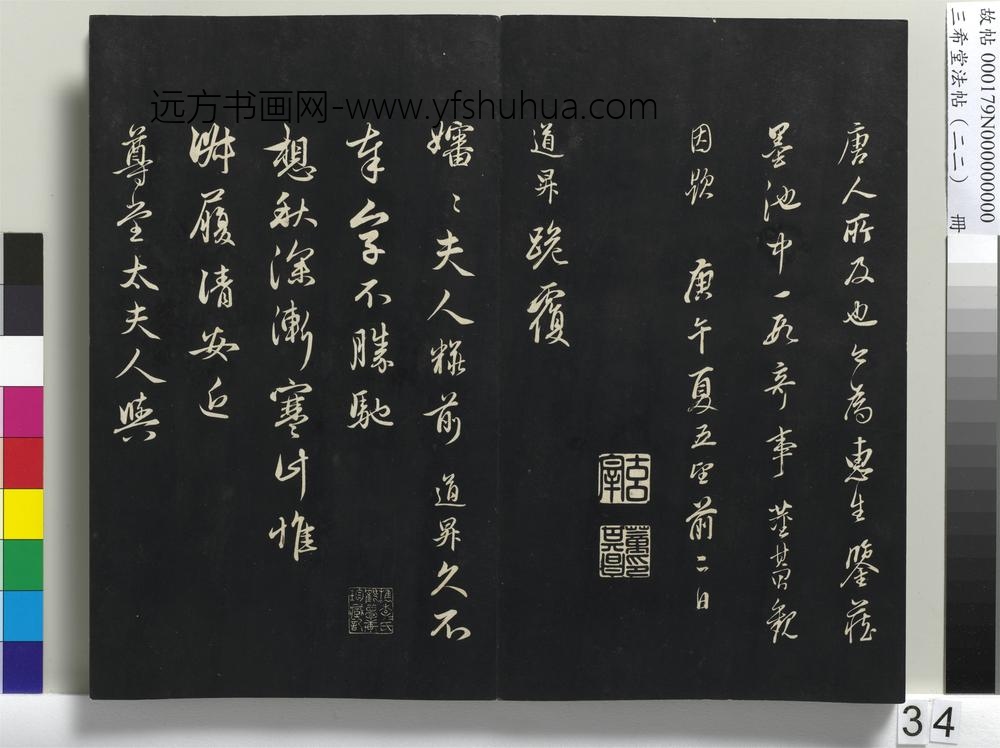 唐人所及也今為惠生鑒藏
墨池中一段奇事 董其昌觀
因題 庚午夏五望前二日
道昇跪覆
嬸〻夫人粧前 道昇久不
奉字不勝馳
想秋深漸寒計惟
淋履清安近
尊堂太夫人與
远方书画网-www.yfshuhua.com
故帖 000179N00000000000
三希堂法帖（二二） 册
34